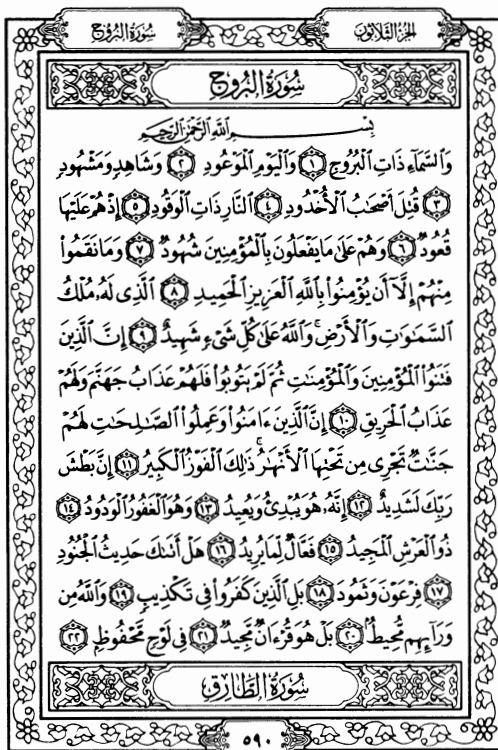 سُورَةُ البُرُوجِ الجُزْءُ الثَّلَاثُونَ
سُورَةُ البُرُوجِ
بِسْمِ ٱللَّهِ ٱلرَّحْمَٰنِ ٱلرَّحِيمِ
وَٱلسَّمَآءِ ذَاتِ ٱلْبُرُوجِ ١ وَٱلْيَوْمِ ٱلْمَوْعُودِ ٢ وَشَاهِدٍ وَمَشْهُودٍ
٣ قُتِلَ أَصْحَٰبُ ٱلْأُخْدُودِ ٤ ٱلنَّارِ ذَاتِ ٱلْوَقُودِ ٥ إِذْ هُمْ عَلَيْهَا
قُعُودٌ ٦ وَهُمْ عَلَىٰ مَا يَفْعَلُونَ بِٱلْمُؤْمِنِينَ شُهُودٌ ٧ وَمَا نَقَمُوا۟
مِنْهُمْ إِلَّآ أَن يُؤْمِنُوا۟ بِٱللَّهِ ٱلْعَزِيزِ ٱلْحَمِيدِ ٨ ٱلَّذِى لَهُۥ مُلْكُ
ٱلسَّمَٰوَٰتِ وَٱلْأَرْضِ ۚ وَٱللَّهُ عَلَىٰ كُلِّ شَىْءٍ شَهِيدٌ ٩ إِنَّ ٱلَّذِينَ
فَتَنُوا۟ ٱلْمُؤْمِنِينَ وَٱلْمُؤْمِنَٰتِ ثُمَّ لَمْ يَتُوبُوا۟ فَلَهُمْ عَذَابُ جَهَنَّمَ وَلَهُمْ
عَذَابُ ٱلْحَرِيقِ ١٠ إِنَّ ٱلَّذِينَ ءَامَنُوا۟ وَعَمِلُوا۟ ٱلصَّٰلِحَٰتِ لَهُمْ
جَنَّٰتٌ تَجْرِى مِن تَحْتِهَا ٱلْأَنْهَٰرُ ۚ ذَٰلِكَ ٱلْفَوْزُ ٱلْكَبِيرُ ١١ إِنَّ بَطْشَ
رَبِّكَ لَشَدِيدٌ ١٢ إِنَّهُۥ هُوَ يُبْدِئُ وَيُعِيدُ ١٣ وَهُوَ ٱلْغَفُورُ ٱلْوَدُودُ ١٤
ذُو ٱلْعَرْشِ ٱلْمَجِيدُ ١٥ فَعَّالٌ لِّمَا يُرِيدُ ١٦ هَلْ أَتَىٰكَ حَدِيثُ ٱلْجُنُودِ
١٧ فِرْعَوْنَ وَثَمُودَ ١٨ بَلِ ٱلَّذِينَ كَفَرُوا۟ فِى تَكْذِيبٍ ١٩ وَٱللَّهُ مِن
وَرَآئِهِم مُّحِيطٌ ٢٠ بَلْ هُوَ قُرْءَانٌ مَّجِيدٌ ٢١ فِى لَوْحٍ مَّحْفُوظٍ ٢٢
سُورَةُ الطَّارِقِ
٥٩٠